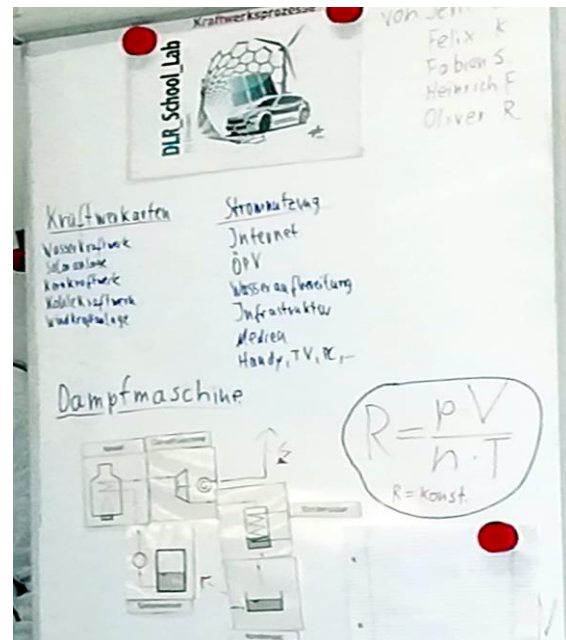 Kraftwerksprozesse
von
Felix K
Fabian S.
Heinrich F
Oliver R
DLR_School_Lab
Kraftwerkarten
Wasserkraftwerk
Solaranlage
Kernkraftwerk
Kohlekraftwerk
Windkraftanlage
Stromnutzung
Internet
ÖPV
Wasseraufbereitung
Infrastruktur
Medien
Handy, TV, PC, ...
Dampfmaschine
R = p · V / n · T
R = konst.